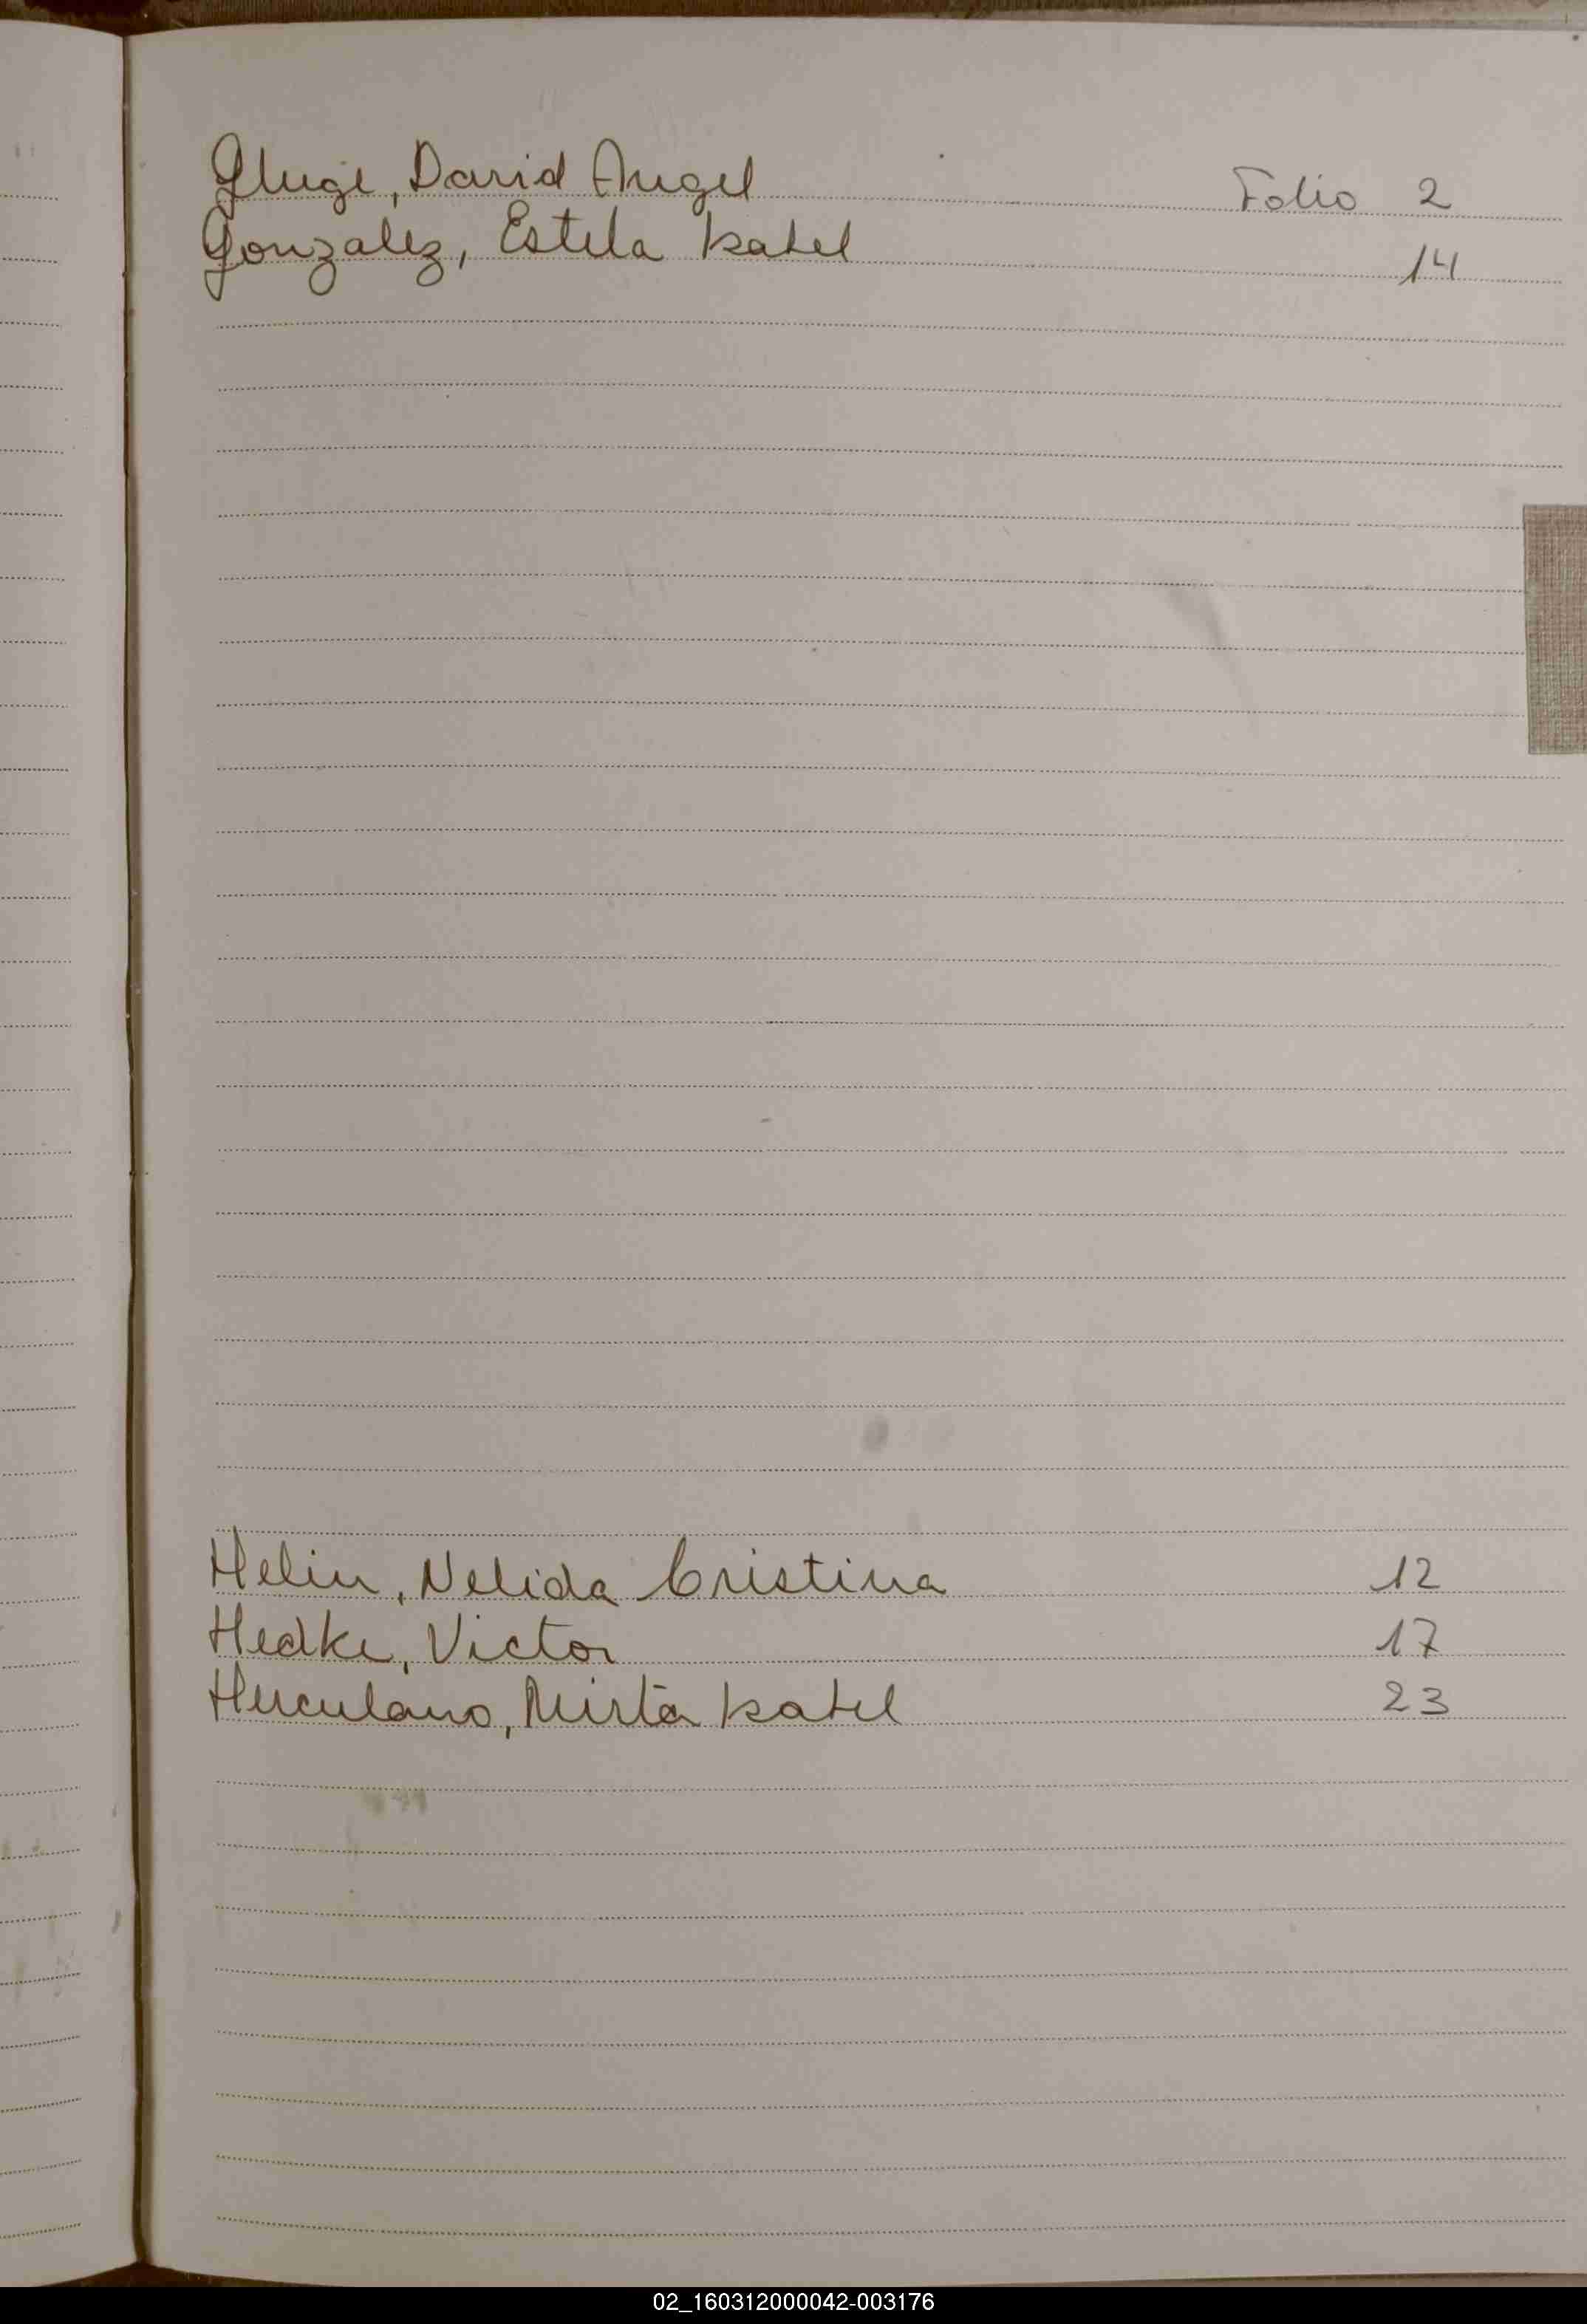 Gluge, David Angel Folio 2
Gonzalez, Estela Isabel 14
Helin, Nelida Cristina 12
Hedke, Victor 17
Herculano, Mirta Isabel 23
02_160312000042-003176